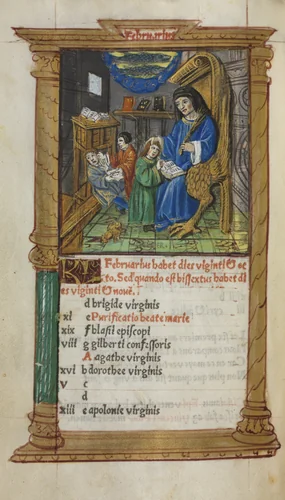 Februarius
KL Februarius habet dies viginti & oc
to. Sed quando est bissextus habet di
es viginti & nove.
d brigide virginis
xi e Purificatio beate marie
xix f blasii episcopi
viii g gilberti confessoris
A agathe virginis
xvi b dorothee virginis
v c
d
xiii e apolonie virginis